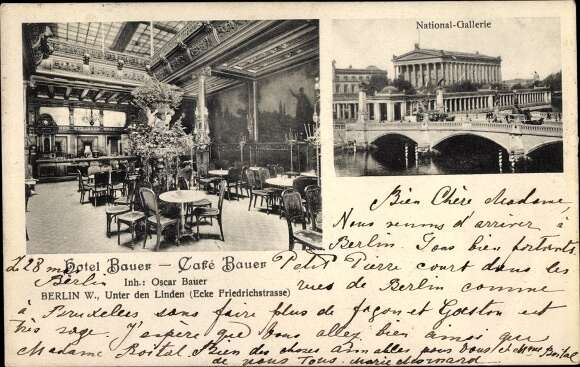 National-Gallerie
Hotel Bauer — Café Bauer
Inh: Oscar Bauer
BERLIN W., Unter den Linden (Ecke Friedrichstrasse)
Bien Chère Madame,
Nous venons d'arriver à
Berlin. Tous bien portants
Petit Pierre court dans les
rues de Berlin comme
Berlin
à Bruxelles sans faire plus de façon et Gaston est
très sage. J'espère que vous allez bien ainsi que
Madame Boital Bien des choses aimables pour vous et Mme Boital
de nous tous. Marie